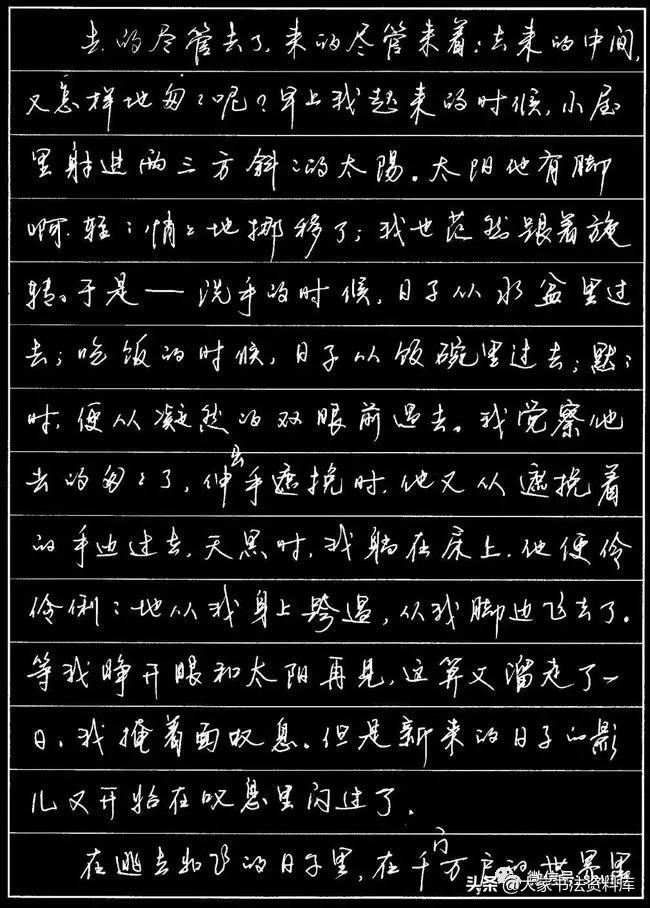 去的尽管去了,来的尽管来着;去来的中间,
又怎样地匆ミ呢?早上我起来的时候,小屋
里射进两三方斜ミ的太陽。太阳他有脚
啊,轻ミ悄ミ地挪移了;我也茫然跟着旋
转。于是——洗手的时候,日子从水盆里过
去;吃饭的时候,日子从饭碗里过去;默ミ
时,便从凝然的双眼前过去。我觉察他
去的匆ミ了,伸出手遮挽时,他又从遮挽着
的手边过去,天黑时,我躺在床上,他便伶
伶俐ミ地从我身上跨过,从我脚边飞去了。
等我睁开眼和太阳再见,这算又溜走了一
日。我掩着面叹息。但是新来的日子的影
儿又开始在叹息里闪过了。
在逃去如飞的日子里,在千门万户的世界里
头条@大家书法资料库